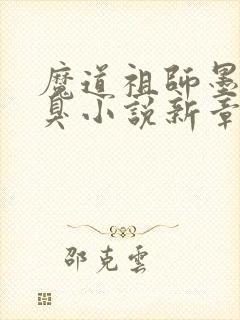 魔道祖師墨
臭小說新章
邵克雲